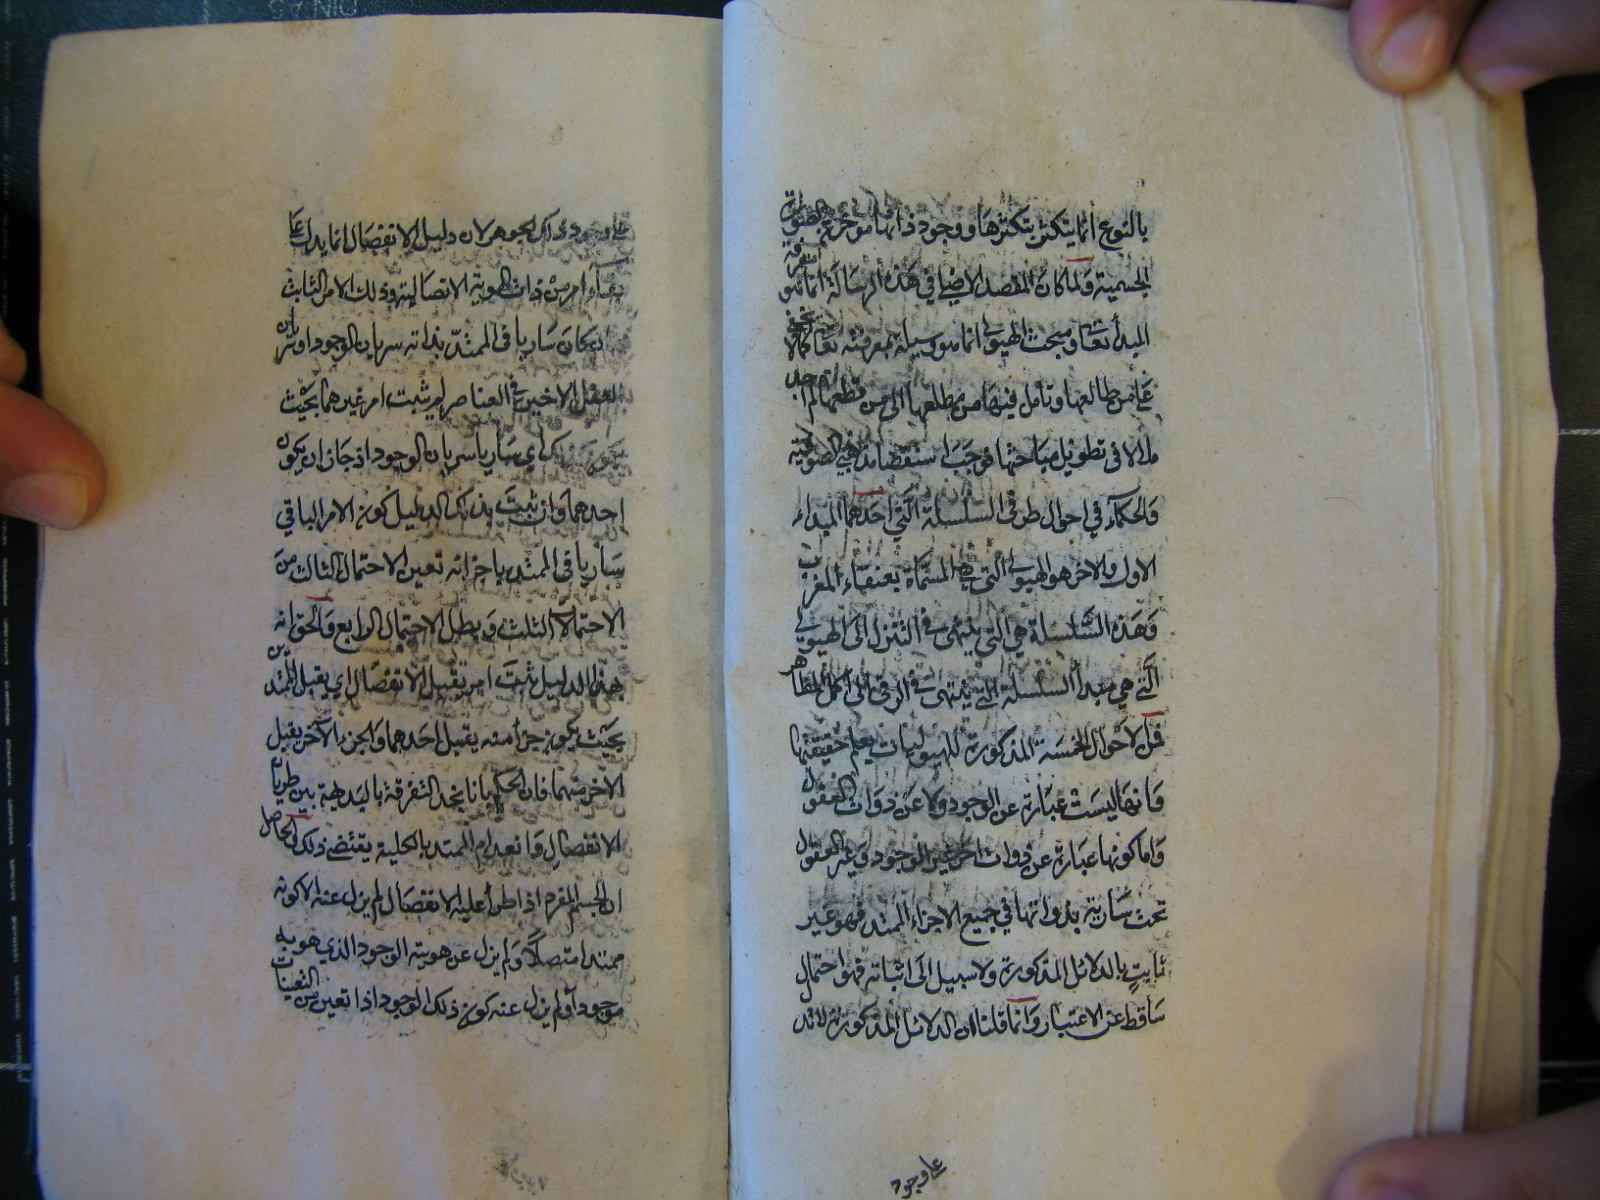 بالنوع انما يتكثر بتكثرها ووجود ذاتها مؤخر عن الصورة
الجسمية ولما كان المقصد الاقصى في هذه الرسالة انما هو معرفة
المبدأ تعالى ومبحث الهيولى انما هو وسيلة لمعرفته تعالى كما لا يخفى
على من طالعها وتأمل فيها من مطلعها الى مقطعها لم اجد
ملالا في تطويل مباحثها فوجب استقصاء مذهبي الصوفية
والحكماء في احوال طرفي السلسلة التي احدهما المبداء
الاول والاخر هو الهيولى التي هي المسماة بعنقاء المغرب
وهذه السلسلة هي التي ينتهي في التنزل الى الهيولى
التي هي مبدأ السلسلة التي ينتهي في الرقي الى اكمل المظاهر
فمن الاحوال الخمسة المذكورة للهيوليات يعلم حقيقتها
وانها ليست عبارة عن الوجود ولا عن ذوات العقول
واما كونها عبارة عن ذوات اخر غير الوجود وغير العقول
تحت سارية بذواتها في جميع الاجزاء الممتد فهو غير
ثابت بالدلائل المذكورة ولا سبيل الى اثباته فهو احتمال
ساقط عن الاعتبار وانما قلنا ان الدلائل المذكورة لا تدل
على وجود
على وجود ذلك الجوهر لان دليل الانفصال انما يدل على
بقاء امر من ذات الهوية الاتصالية وذلك الامر الثابت
ان كان ساريا في الممتد بذاته سريان الوجود او سريان
العقل الاخير في العناصر لم يثبت امر غيرهما بحيث
يكون كل ساريا سريان الوجود اذ جاز ان يكون
احدهما وان ثبت بذلك الدليل كون الامر الباقي
ساريا في الممتد باجزائه تعين الاحتمال الثالث من
الاحتمالات الثلث وبطل الاحتمال الرابع والحق انه
بهذا الدليل ثبت امر يقبل الانفصال اي يقبل الممتدين
بحيث يكون جزأ منه يقبل احدهما والجزء الاخر يقبل
الاخر منهما فان الحكم بانا نجد التفرقة بالبديهة بين طريان
الانفصال وانعدام الممتد بالكلية يقتضي ذلك الحاصل
ان الجسم المفرد اذا طرأ عليه الانفصال لم يزل عنه الا كونه
ممتدا متصلا ولم يزل عن هوية الوجود الذي هو به
موجود أو لم يزل عنه كون ذلك الوجود اذا تعين من التعينات